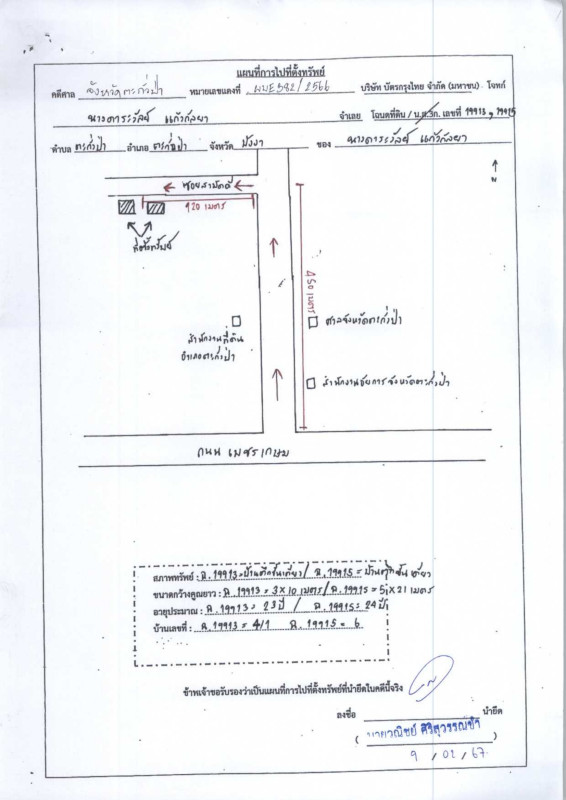 แผนที่การไปที่ตั้งทรัพย์
คดีศาล จังหวัดตะกั่วป่า หมายเลขแดงที่ ผบE382/2566 บริษัท บัตรกรุงไทย จำกัด (มหาชน) โจทก์
นางดาระวัลย์ แก้วกัลยา จำเลย โฉนดที่ดิน / น.ส.3ก. เลขที่ 19913, 19915
ตำบล ตะกั่วป่า อำเภอ ตะกั่วป่า จังหวัด พังงา ของ นางดาระวัลย์ แก้วกัลยา
N
ซอยสามัคคี
120 เมตร
ที่ตั้งทรัพย์
450 เมตร
ศาลจังหวัดตะกั่วป่า
สำนักงานที่ดิน
อำเภอตะกั่วป่า
สำนักงานอัยการจังหวัดตะกั่วป่า
ถนน เพชรเกษม
สภาพทรัพย์ : ฉ.19913 = บ้านตึกชั้นเดียว / ฉ.19915 = บ้านตึกชั้นเดียว
ขนาดกว้างคูณยาว : ฉ.19913 = 3x10 เมตร / ฉ.19915 = 5x21 เมตร
อายุประมาณ : ฉ.19913 = 23 ปี / ฉ.19915 = 24 ปี
บ้านเลขที่ : ฉ.19913 = 4/1 ฉ.19915 = 6
ข้าพเจ้าขอรับรองว่าเป็นแผนที่การไปที่ตั้งทรัพย์ที่นำยึดในคดีนี้จริง
ลงชื่อ นำยึด
( นายวณิชย์ ศิริสุวรรณขำ )
9 / 02 / 67